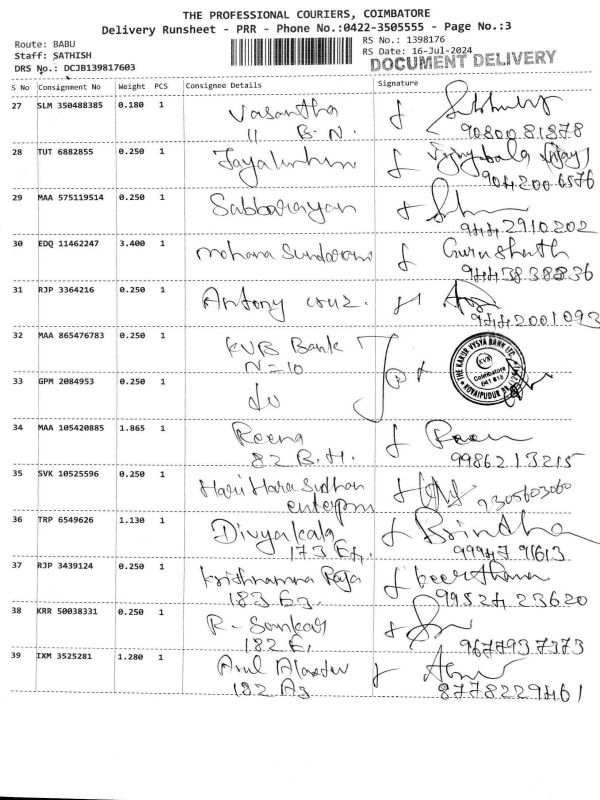 THE PROFESSIONAL COURIERS, COIMBATORE
Delivery Runsheet - PRR - Phone No.:0422-3505555 - Page No.:3
Route: BABU
RS No.: 1398176
Staff: SATHISH
RS Date: 16-Jul-2024
DRS No.: DCJB139817603
DOCUMENT DELIVERY
S No Consignment No Weight PCS Consignee Details Signature
27 SLM 350488385 0.180 1 Vasantha
11 B.N. 90800 81878
28 TUT 6882855 0.250 1
904200 6576
29 MAA 575119514 0.250 1 Sabbarayan
944 2910 202
30 EDQ 11462247 3.400 1 mohana Sundaram
9443838836
31 RJP 3364216 0.250 1 Antony cruz.
9442001093
32 MAA 865476783 0.250 1 KVB Bank
N=10
THE KARUR VYSYA BANK LTD.
KVB
Coimbatore
641
KOVAIPUDUR
33 GPM 2084953 0.250 1 do
34 MAA 105420885 1.865 1 Reena
82 B.H. 9986213215
35 SVK 10525596 0.250 1 Hari Hara Sudhan
9305603060
36 TRP 6549626 1.130 1 Divyakala Brindha
173 99947 91613
37 RJP 3439124 0.250 1 Krishnamma Raja Keerthana
183 99524 23620
38 KRR 50038331 0.250 1 R - Sankar
182 9677937373
39 IXM 3525281 1.280 1 Arul
182 8778229461